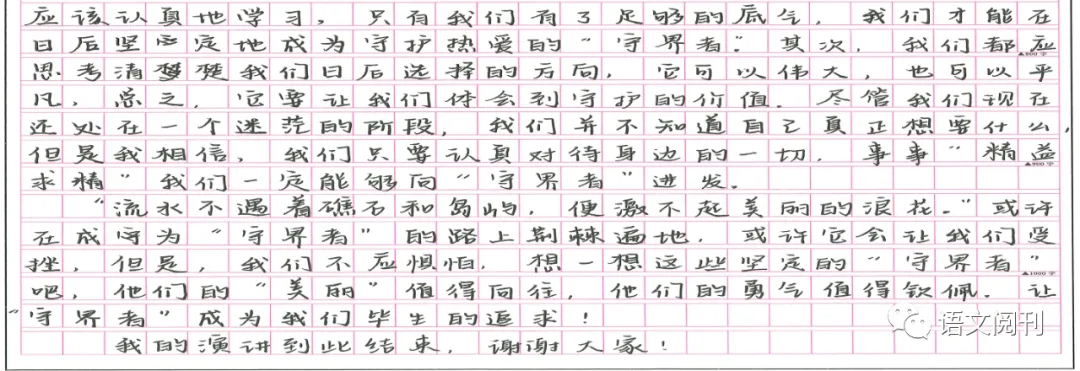 应该认真地学习，只有我们有了足够的底气，我们才能在
日后坚定地成为守护热爱的“守界者”。其次，我们都应
▲800字
思考清楚我们日后选择的方向，它可以伟大，也可以平
凡，总之，它要让我们体会到守护的价值。尽管我们现在
还处在一个迷茫的阶段，我们并不知道自己真正想要什么，
但是我相信，我们只要认真对待身边的一切，事事“精益
▲900字
求精”我们一定能够向“守界者”进发。
“流水不遇着礁石和岛屿，便激不起美丽的浪花。”或许
在成为“守界者”的路上荆棘遍地，或许它会让我们受
挫，但是，我们不应惧怕，想一想这些坚定的“守界者”
▲1000字
吧，他们的“美丽”值得向往，他们的勇气值得钦佩。让
“守界者”成为我们毕生的追求！
我的演讲到此结束，谢谢大家！
语文阅刊